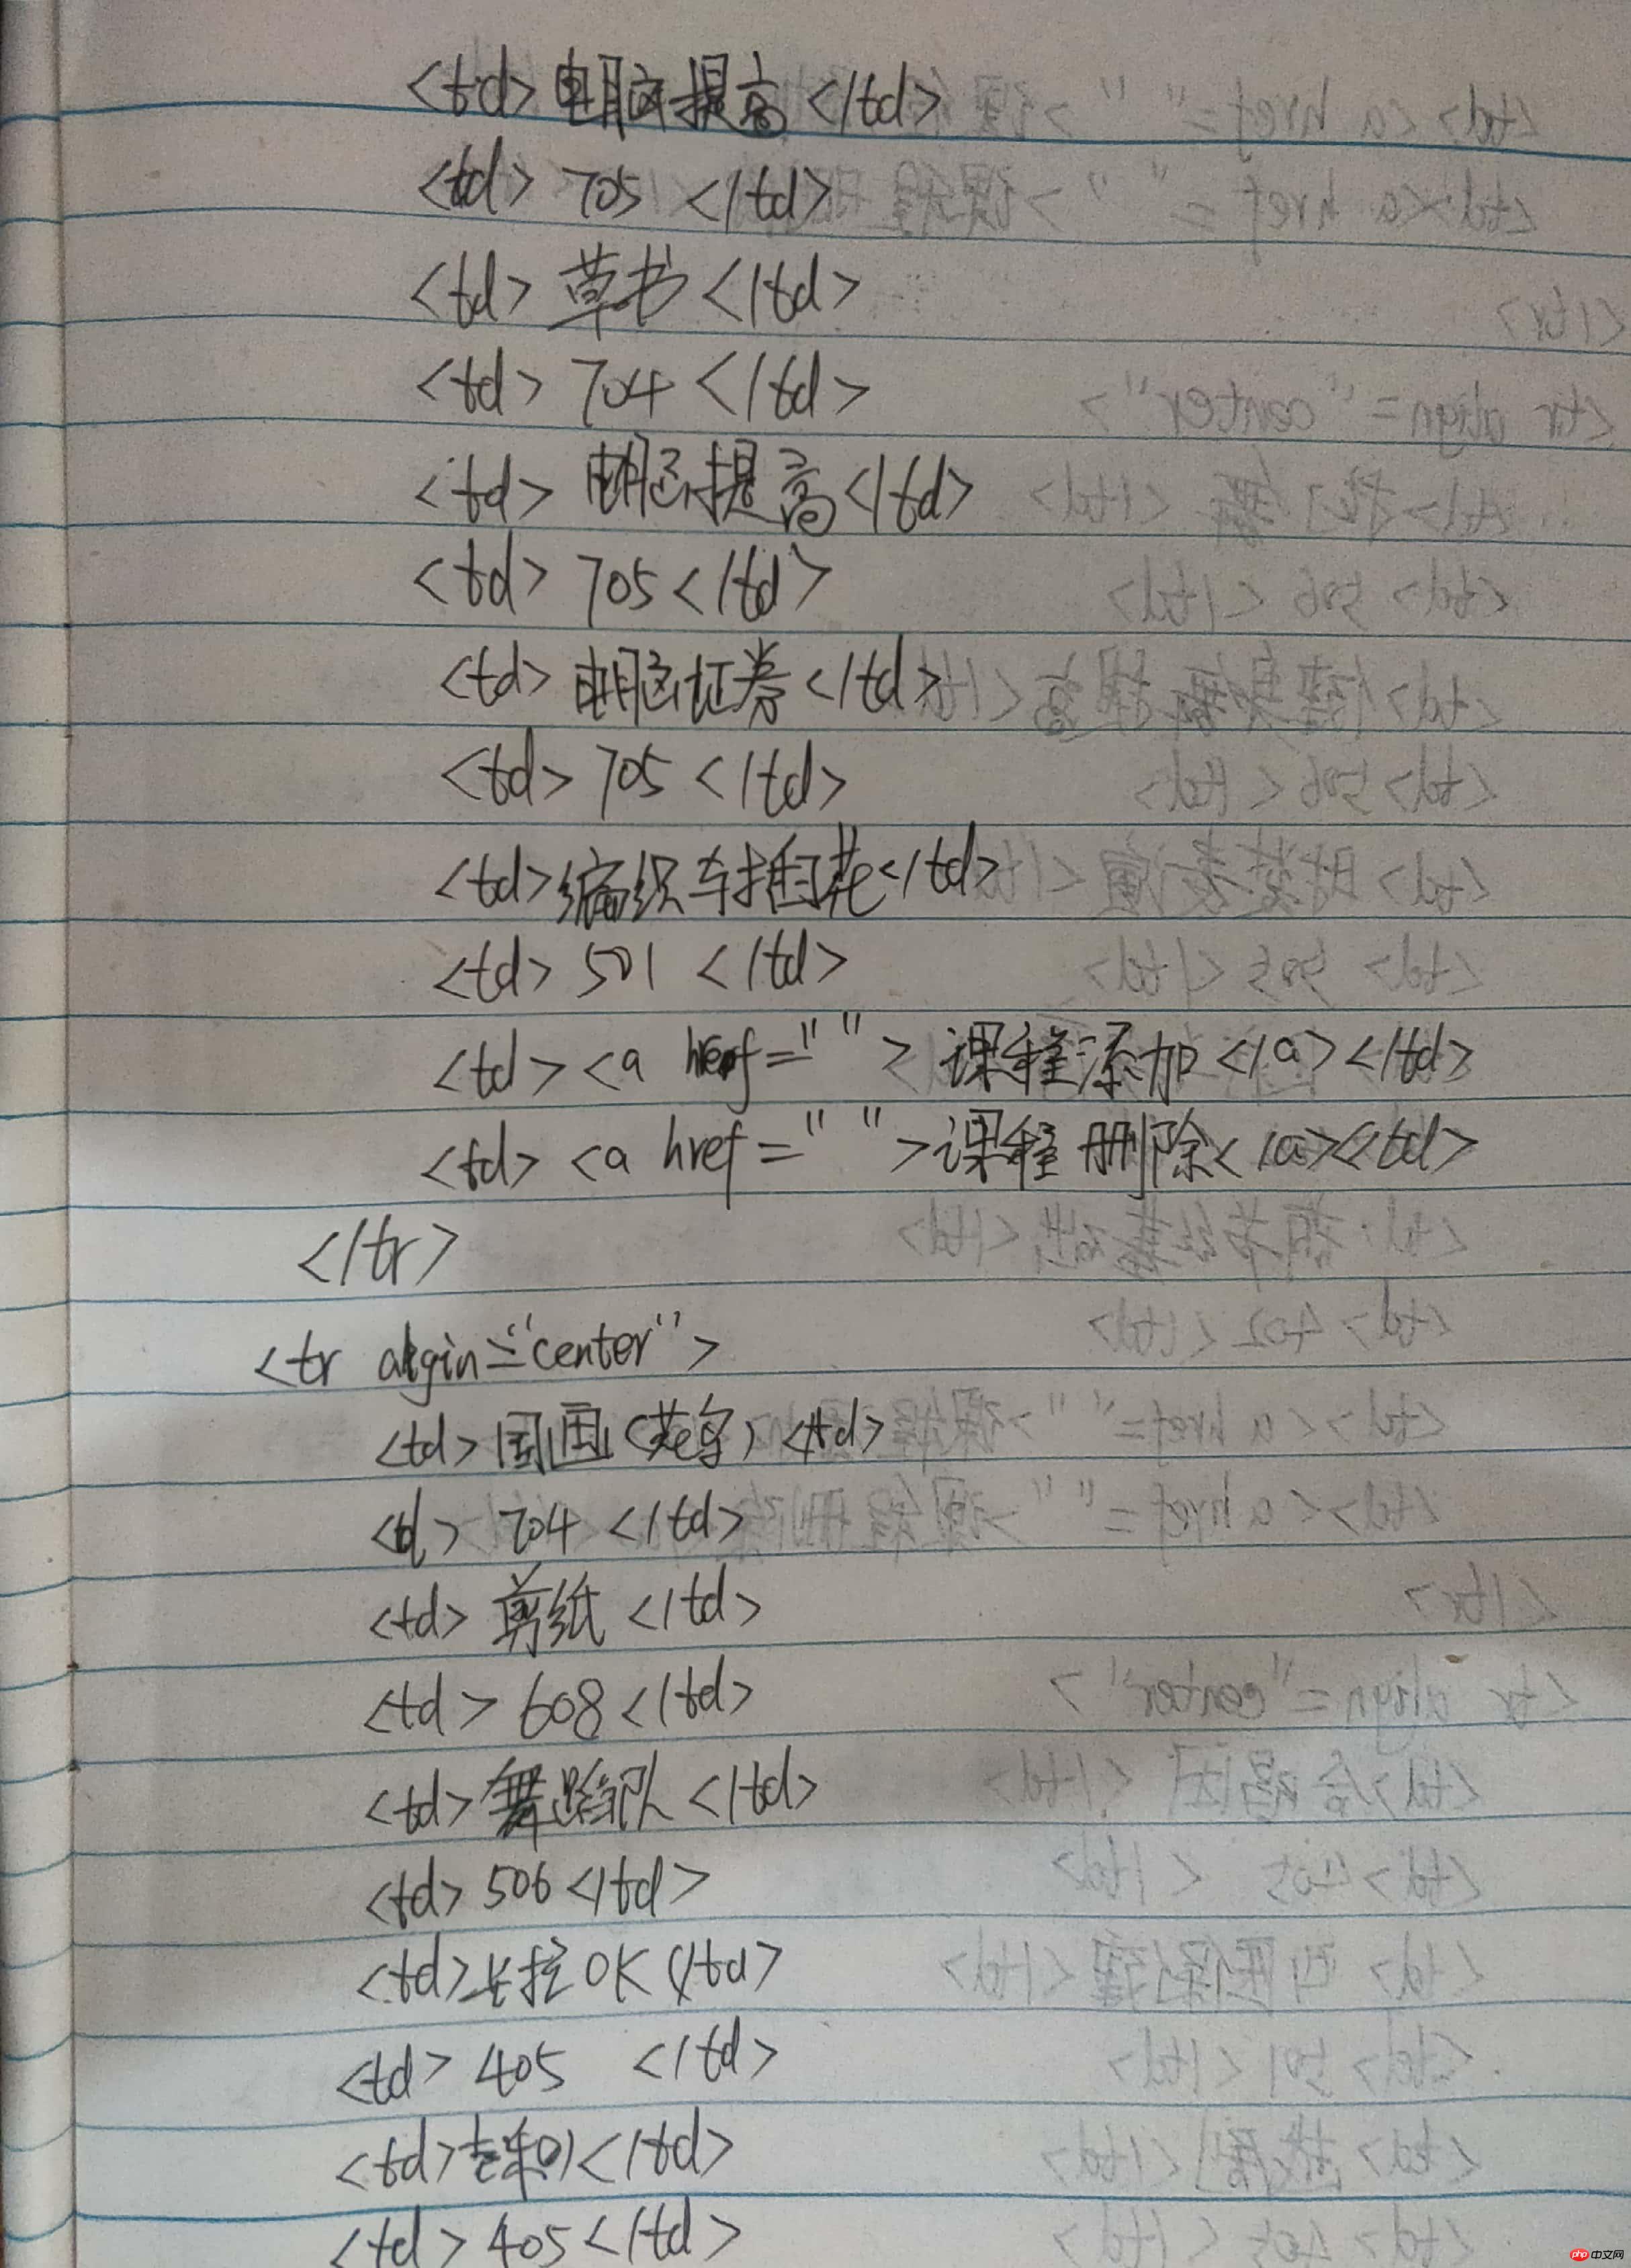 <td>电脑提高</td>
<td>705</td>
<td>草书</td>
<td>704</td>
<td>电脑提高</td>
<td>705</td>
<td>电脑证券</td>
<td>705</td>
<td>编织与插花</td>
<td>501</td>
<td><a href="">课程添加</a></td>
<td><a href="">课程删除</a><td>
</tr>
<tr algin="center">
<td>国画(花鸟)</td>
<td>704</td>
<td>剪纸</td>
<td>608</td>
<td>舞蹈队</td>
<td>506</td>
<td>卡拉OK</td>
<td>405</td>
<td></td>
<td>405</td>
php中文网